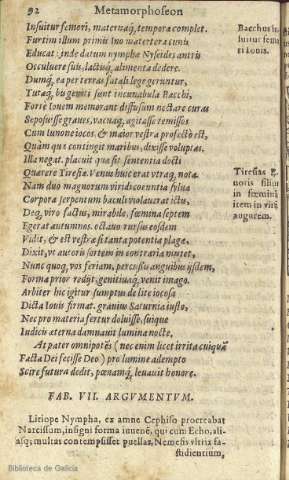 92 Metamorphoseon
Insuitur femori, maternaq́; tempora complet.
Furtim illum primis Ino matertera cunis
Educat: inde datum nymphæ Nyseides antris
Occuluere suis, lactisq́; alimenta dedere.
Dumq́; ea per terras fatali lege geruntur,
Tutaq́; bis geniti sunt incunabula Bacchi,
Forte Iouem memorant diffusum nectare curas
Seposuisse graues, vacuaq́; agitasse remissos
Cum Iunone iocos. & maior vestra profectò est,
Quàm quæ contingit maribus, dixisse voluptas.
Illa negat. placuit quæ sit sententia docti
Quærere Tiresiæ. Venus huic erat vtraq́; nota.
Nam duo magnorum viridi coeuntia sylua
Corpora serpentum baculi violauerat ictu,
Deq́; viro factus, mirabile, fœmina septem
Egerat autumnos. octauo rursus eosdem
Vidit, & est vestræ si tanta potentia plagæ,
Dixit, vt autoris sortem in contraria mutet,
Nunc quoq; vos feriam, percussis anguibus ijsdem,
Forma prior redijt, genitiuaq́; venit imago.
Arbiter hic igitur sumptus de lite iocosa
Dicta Iouis firmat. grauius Saturnia iusto,
Nec pro materia fertur doluisse, suique
Iudicis æterna damnauit lumina nocte,
At pater omnipotẽs (nec enim licet irrita cuiquã
Facta Dei fecisse Deo) pro lumine adempto
Scire futura dedit, pœnamq́; leuauit honore.
Bacchus in-
suitur femo
ri Iouis.
Tiresias E
noris filius
in fœminã
item in virũ
augurem.
FAB. VII. ARGVMENTVM.
Liriope Nympha, ex amne Cephiso procreabat
Narcissum, insigni forma iuuenē, qui cùm Echo, ali-
asq; multas contempsisset puellas, Nemesis vltrix fa-
stidientium,
Biblioteca de Galicia